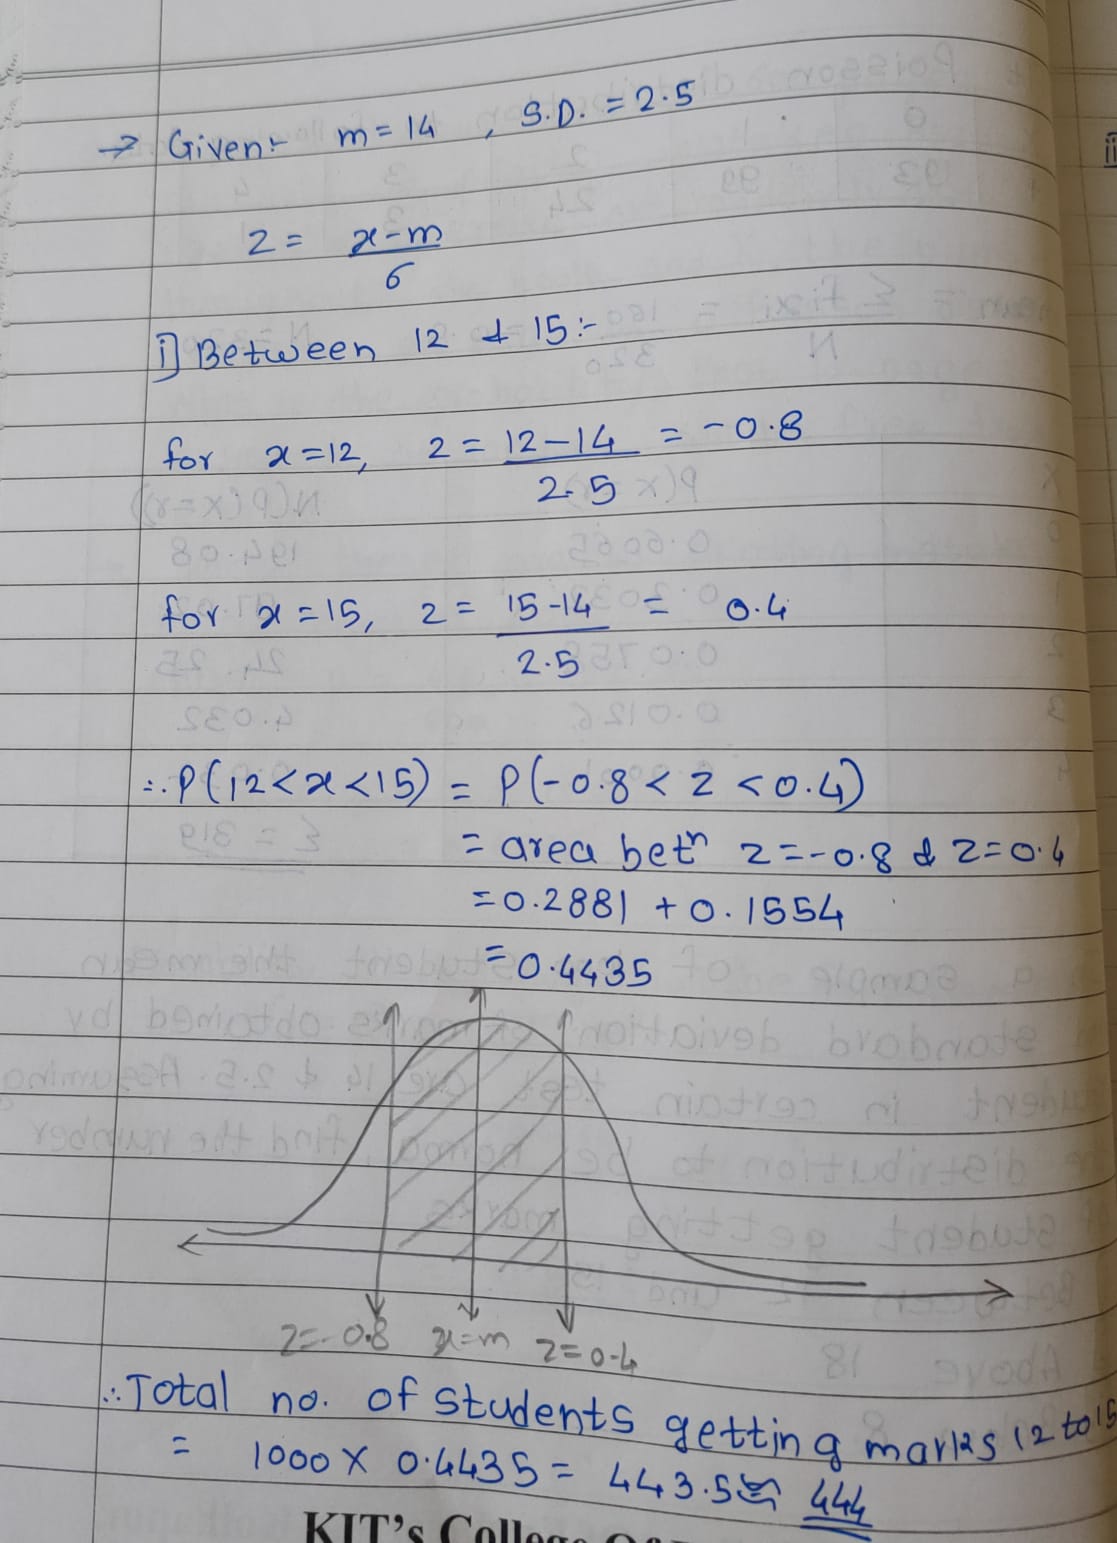 → Given:- m = 14 , S.D. = 2.5
z = x-m / σ
i] Between 12 & 15 :-
for x = 12, z = 12-14 / 2.5 = -0.8
for x = 15, z = 15-14 / 2.5 = 0.4
∴ P(12 < x < 15) = P(-0.8 < z < 0.4)
= area betn z = -0.8 & z = 0.4
= 0.2881 + 0.1554
= 0.4435
z=-0.8 x=m z=0.4
∴ Total no. of students getting marks 12 to 15
= 1000 × 0.4435 = 443.5 ≈ 444
KIT's College